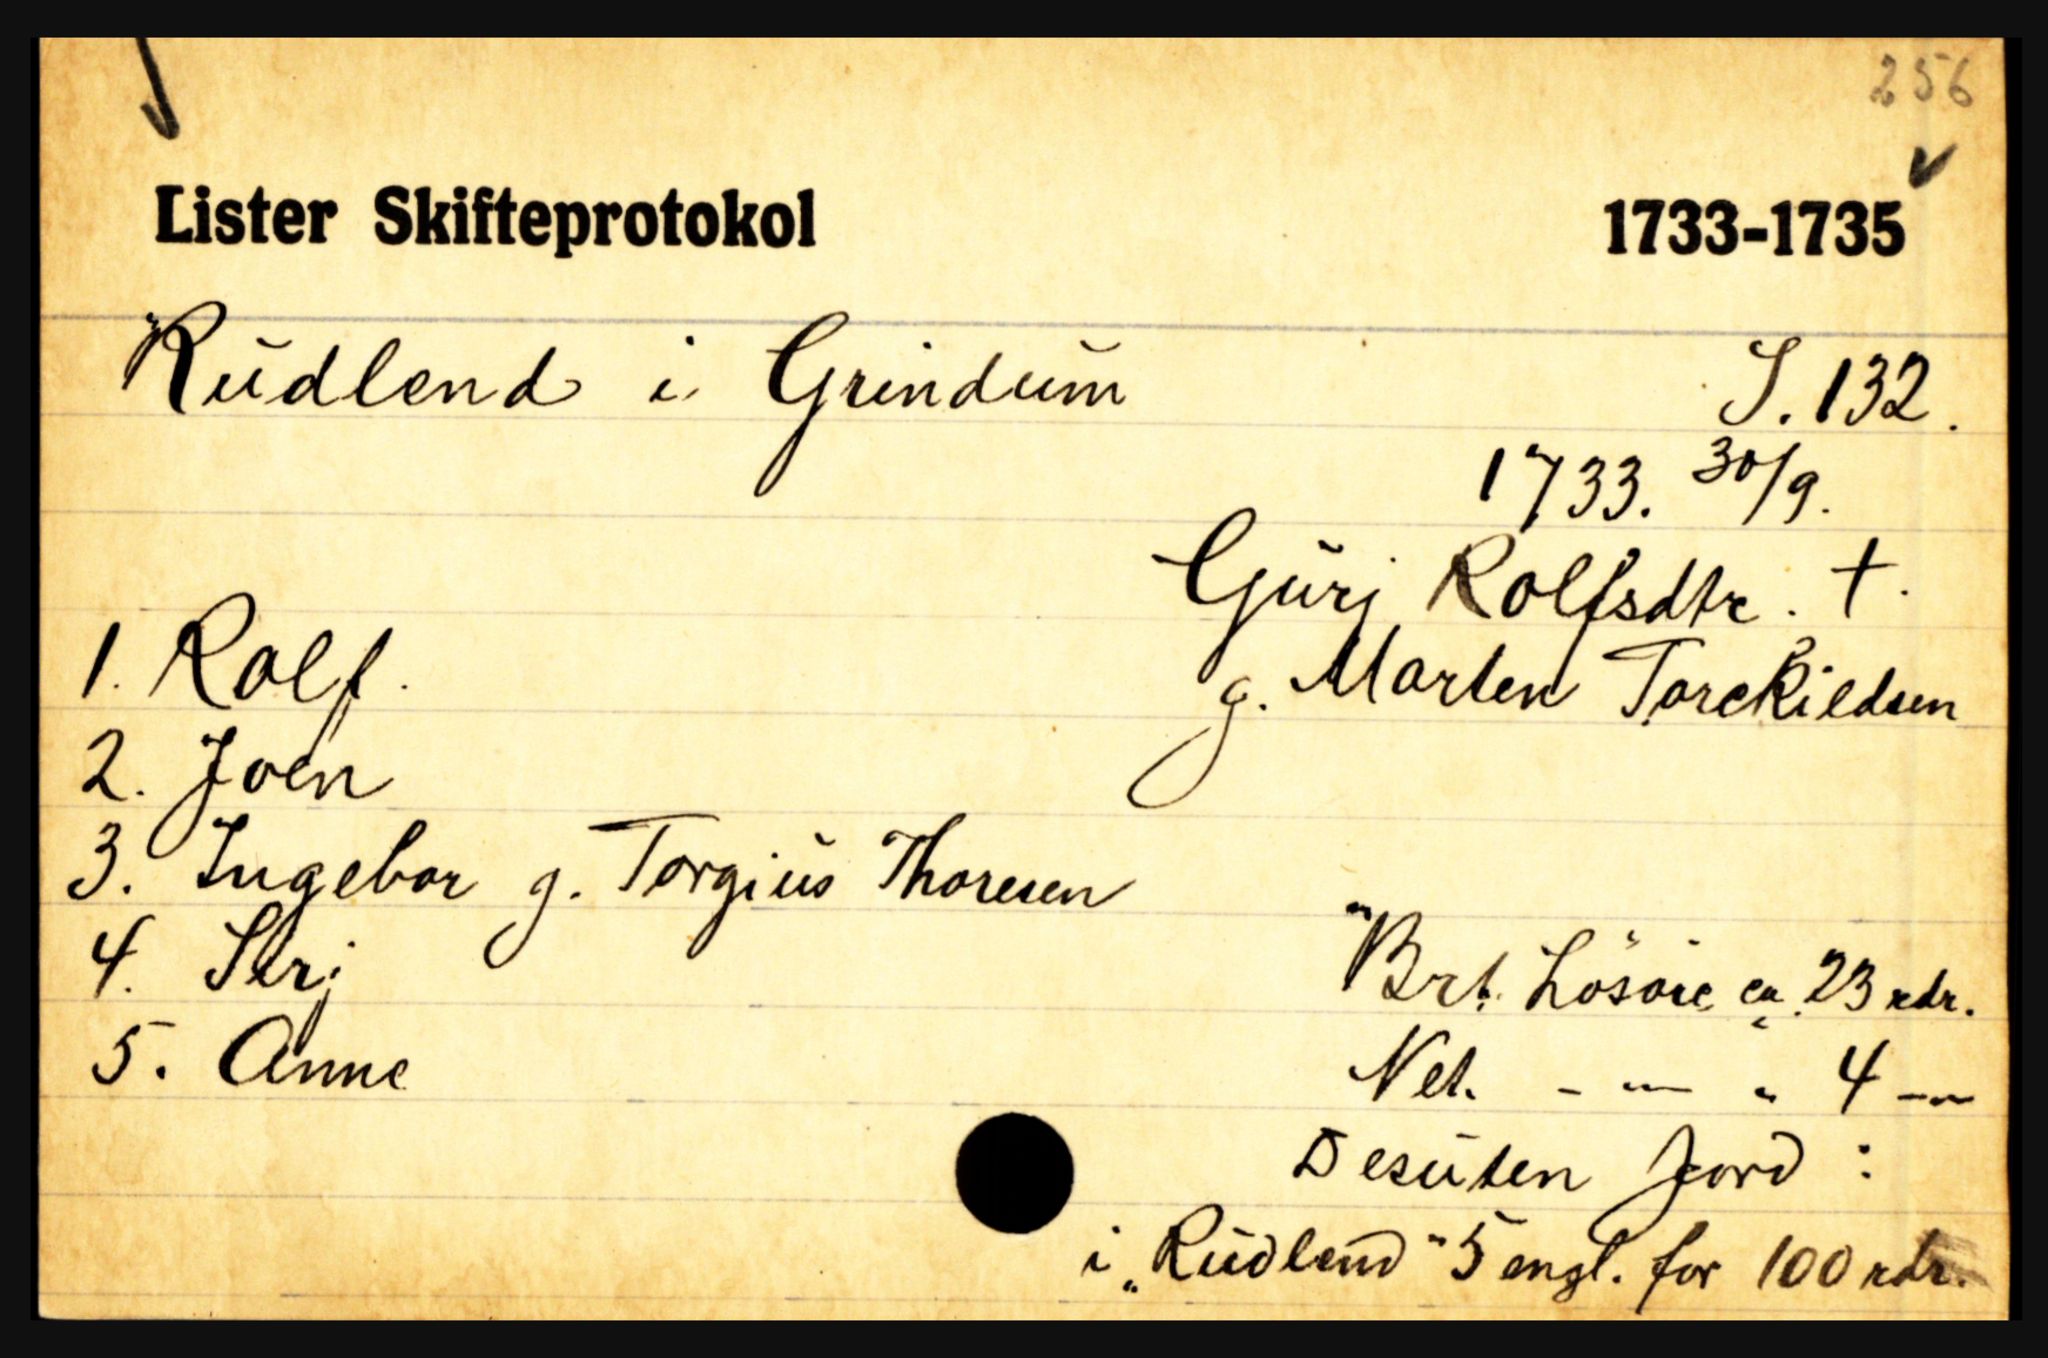 256
Lister Skifteprotokol 1733-1735
Rüdlend i Grindüm S. 132.
1733. 30/9.
Gürj Rolfsdtr. †.
g. Marten Torckildsen
1. Rolf.
2. Joen
3. Ingebor g. Torgiüs Thoresen
4. Sirj
5. Anne
Brt. Lösöre ca. 23 rdr.
Net. - " - " 4 - " -
Desüten Jord :
i „Rüdlend" 5 engl. for 100 rdr.